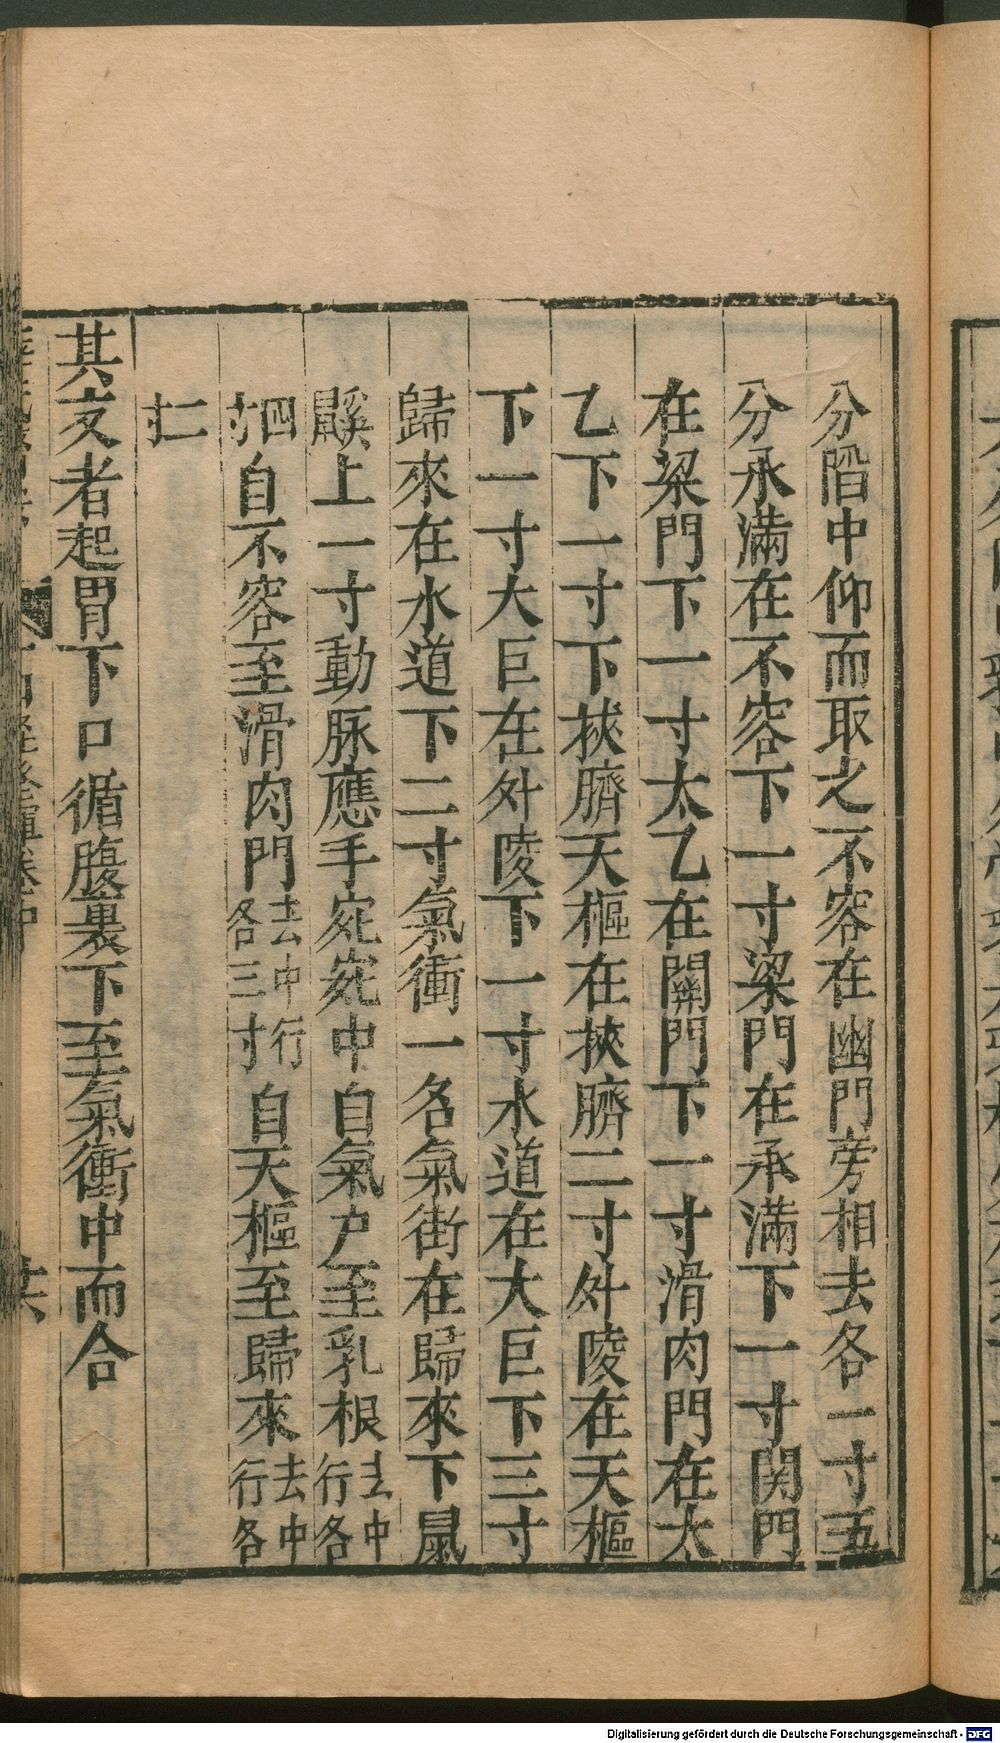 分陷中仰而取之不容在幽門旁相去各一寸五
分承滿在不容下一寸梁門在承滿下一寸関門
在梁門下一寸太乙在關門下一寸滑肉門在太
乙下一寸下挾臍天樞在挾臍二寸外陵在天樞
下一寸大巨在外陵下一寸水道在大巨下三寸
歸來在水道下二寸氣衝一名氣街在歸來下鼠
鼷上一寸動脉應手宛宛中自氣户至乳根去中行各
四寸自不容至滑肉門去中行各三寸自天樞至歸來去中行各
二寸
其支者起胃下口循腹裏下至氣衝中而合
Digitalisierung gefördert durch die Deutsche Forschungsgemeinschaft - DFG